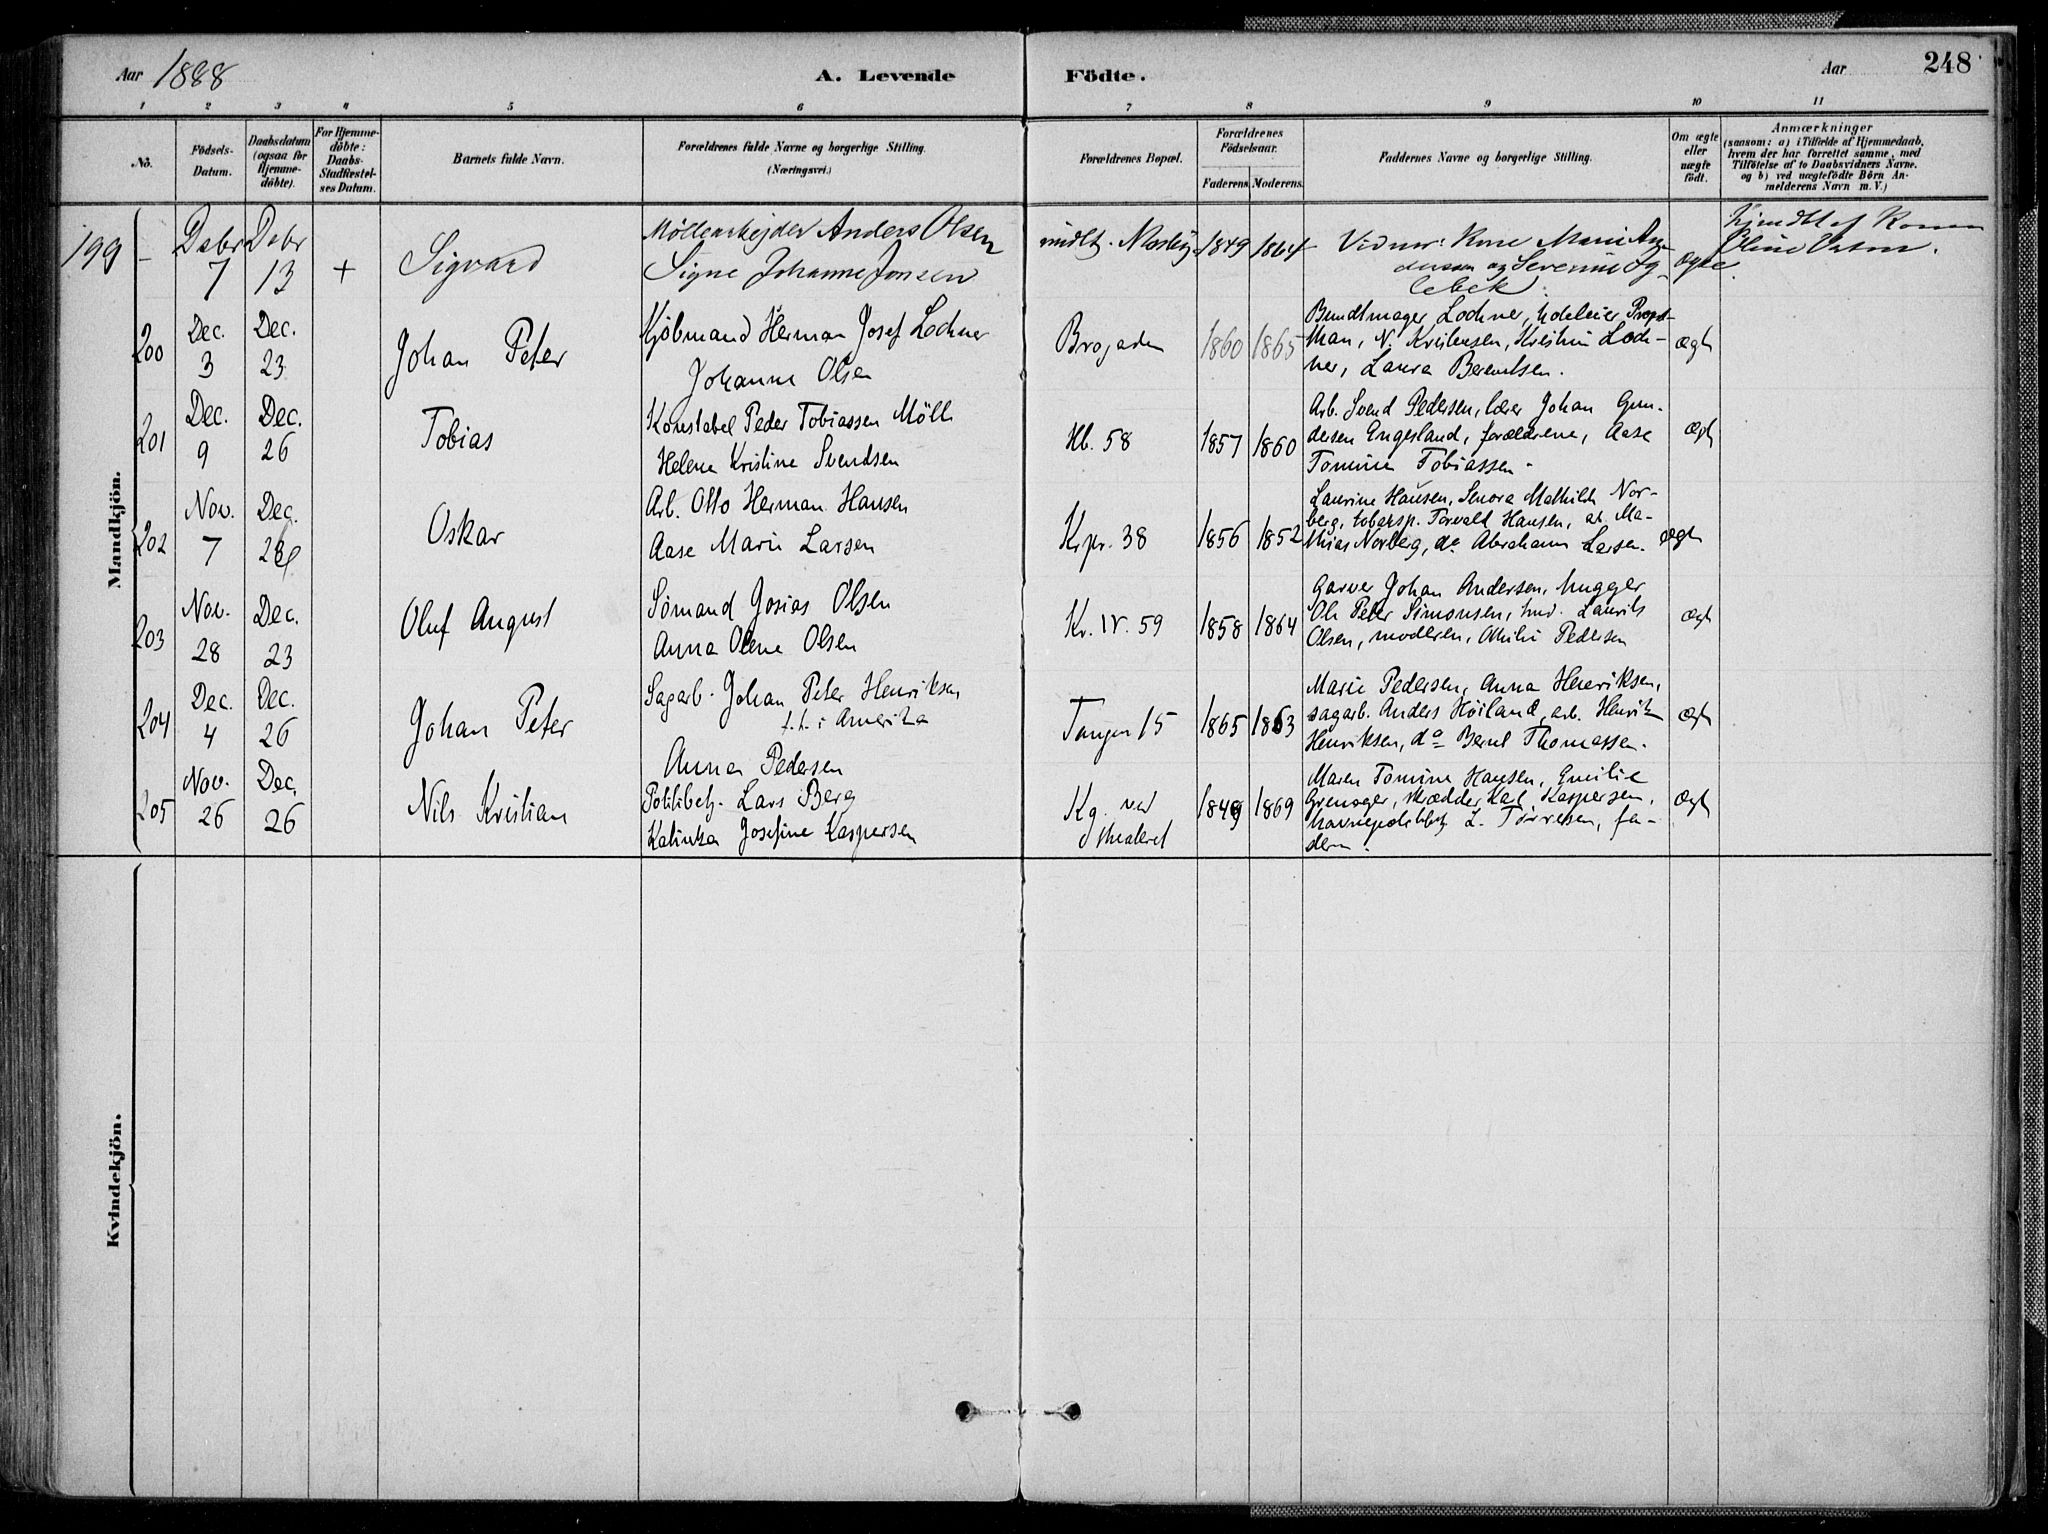 Aar 1888 A. Levende Födte. Aar 248
1 2 3 4 5 6 7 8 9 10 11
No. Födsels-Datum. Daabsdatum (ogsaa for Hjemme-döbte). For Hjemme-döbte: Daabs-Stadfæstel-ses Datum. Barnets fulde Navn. Forældrenes fulde Navne og borgerlige Stilling. (Næringsvei.) Forældrenes Bopæl. Forældrenes Födselsaar. Faderens Moderens. Faddernes Navne og borgerlige Stilling. Om ægte eller uægte födt. Anmærkninger (sansom: a) i Tilfælde af Hjemmedaab, hvem der har forrettet samme, med Tilföielse af to Daabsvidners Navne, og b) ved uægtefödte Börn An-melderens Navn m.V.)
Mandkjön.
199 – Dcbr 7 Dcbr 13 + Sigvard
Möllearbejder Anders Olsen
Signe Johanne Jonsen
indt. Mosby 1849 1864
Vidner: Marie An-
dersen og Severine Og-
lebek. Ægte
af Konen
Oline
200 Dec. 3 Dec. 23 Johan Peter
Kjöbmand Herman Josef Lochner
Johanne Olsen
Brogaden 1860 1865
Bundtmager Lochner, hoteleier Propst-
Man, N. Kristensen, Kristine Loch-
ner, Laura Berentsen. Ægte
201 Dec. 9 Dec. 26 Tobias
Konstabel Peder Tobiassen Möll
Helene Kristine Svendsen
Kb. 58 1857 1860
Arb. Svend Pedersen, lærer Johan Gun-
dersen Engesland, forældrene, Aase
Tomine Tobiassen. Ægte
202 Nov. 7 Dec. 26 Oskar
Arb. Otto Herman Hansen
Aase Marie Larsen
Krpr. 38 1856 1852
Laurine Hansen, Senora Mathilde Nor-
berg, tobaksp. Torvald Hansen, at. Ma-
thias Norberg, do Abraham Larsen. Ægte
203 Nov. 28 Dec. 23 Oluf August
Sömand Josias Olsen
Anna Olene Olsen
Kr. IV. 59 1858 1864
Garver Johan Andersen, hugger
Ole Peter Simonsen, hud. Laurits
Olsen, moderen, Othilie Pedersen Ægte
204 Dec. 4 Dec. 26 Johan Peter
Sagarb. Johan Peter Henriksen
f.t. i Amerika
Anna Pedersen
Tangen 15 1865 1863
Marie Pedersen, Anna Henriksen,
sagarb. Anders Höiland, arb. Henrik
Henriksen, do Bernt Thomassen. Ægte
205 Nov. 26 Dec. 26 Nils Kristian
Politibetj. Lars Berg
Kalinka Josefine Kaspersen
Kg. ved theateret 1849 1869
Maren Tomine Hansen, Emilie
Grenager, skrædder Karl Kaspersen,
havnepolitibtj L. Torressen, fa-
deren. Ægte
Kvindekjön.